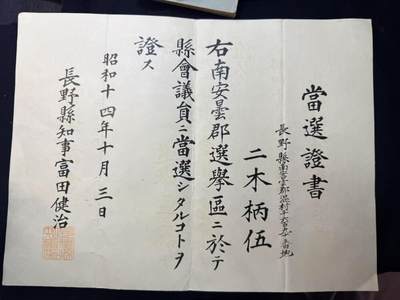 當選證書
長野縣南安曇郡温村
二木柄伍
右南安曇郡選擧區ニ於テ
縣會議員ニ當選シタルコトヲ
證ス
昭和十四年十月三日
長野縣知事富田健治